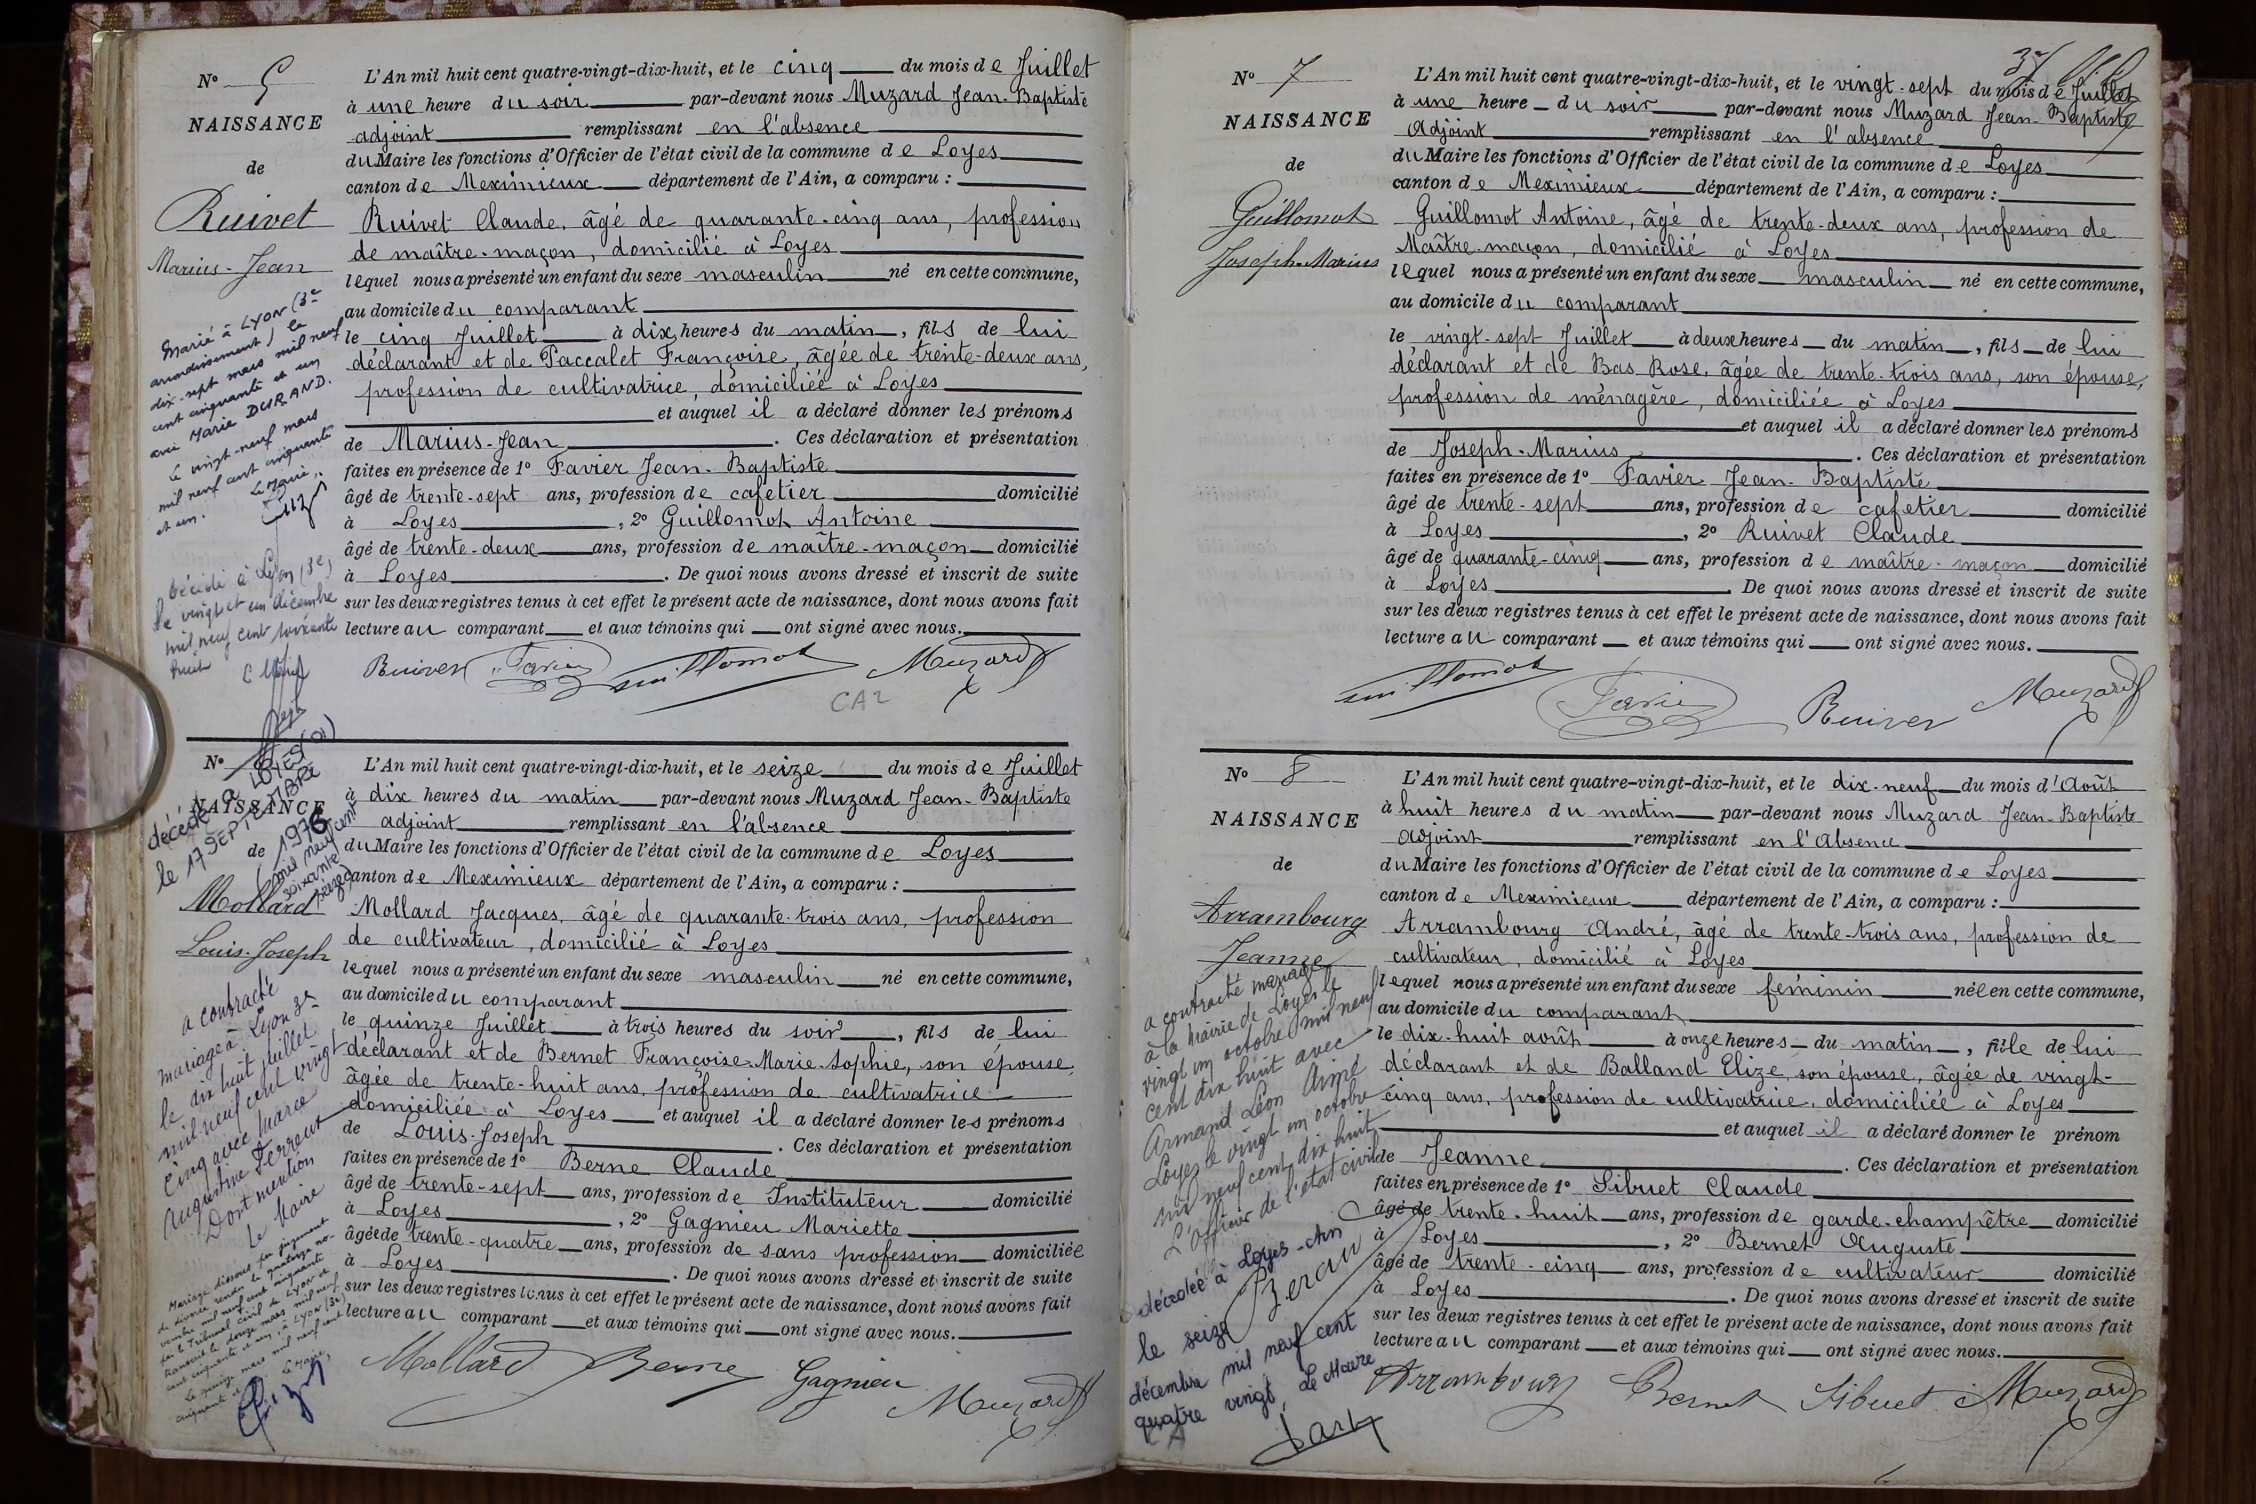 N° 5
NAISSANCE
de
Ruivet
Marius-Jean
Marié à LYON (3e
arrondissement) le
dix-sept mars mil neuf
cent cinquante et un
avec Marie DURAND.
Le vingt-neuf mars
mil neuf cent cinquante
et un. Le Maire,
Décédé à Lyon (3e)
le vingt et un décembre
mil neuf cent soixante
huit
L'An mil huit cent quatre-vingt-dix-huit, et le cinq du mois de Juillet
à une heure du soir par-devant nous Muzard Jean-Baptiste
adjoint remplissant en l'absence
du Maire les fonctions d'Officier de l'état civil de la commune de Loyes
canton de Meximieux département de l'Ain, a comparu :
Ruivet Claude, âgé de quarante-cinq ans, profession
de maître-maçon, domicilié à Loyes
lequel nous a présenté un enfant du sexe masculin né en cette commune,
au domicile du comparant
le cinq Juillet à dix heures du matin, fils de lui
déclarant et de Paccalet Françoise, âgée de trente-deux ans,
profession de cultivatrice, domiciliée à Loyes
et auquel il a déclaré donner les prénoms
de Marius-Jean. Ces déclaration et présentation
faites en présence de 1° Favier Jean-Baptiste
âgé de trente-sept ans, profession de cafetier domicilié
à Loyes, 2° Guillomot Antoine
âgé de trente-deux ans, profession de maître-maçon domicilié
à Loyes. De quoi nous avons dressé et inscrit de suite
sur les deux registres tenus à cet effet le présent acte de naissance, dont nous avons fait
lecture au comparant et aux témoins qui ont signé avec nous.
Ruivet Favier Guillomot Muzard
CA2
N° 6
NAISSANCE
de
Mollard
Louis-Joseph
décédé à LOYES (01)
le 17 SEPTEMBRE
1976
(mil neuf cent
soixante
seize)
a contracté
mariage à Lyon 3e
le dix huit juillet
mil neuf cent vingt
cinq avec Marie
Augustine Ferreut
Dont mention
Le Maire
Mariage dissous par jugement
de divorce rendu le quatorze no-
vembre mil neuf cent cinquante
par le Tribunal civil de LYON et
transcrit le douze mars mil neuf
cent cinquante et un, à LYON (3e)
Le quinze mars mil neuf cent
cinquante et un. Le Maire,
L'An mil huit cent quatre-vingt-dix-huit, et le seize du mois de Juillet
à dix heures du matin par-devant nous Muzard Jean-Baptiste
adjoint remplissant en l'absence
du Maire les fonctions d'Officier de l'état civil de la commune de Loyes
canton de Meximieux département de l'Ain, a comparu :
Mollard Jacques, âgé de quarante-trois ans, profession
de cultivateur, domicilié à Loyes
lequel nous a présenté un enfant du sexe masculin né en cette commune,
au domicile du comparant
le quinze Juillet à trois heures du soir, fils de lui
déclarant et de Bernet Françoise-Marie-Sophie, son épouse,
âgée de trente-huit ans, profession de cultivatrice
domiciliée à Loyes et auquel il a déclaré donner les prénoms
de Louis-Joseph. Ces déclaration et présentation
faites en présence de 1° Berne Claude
âgé de trente-sept ans, profession de Instituteur domicilié
à Loyes, 2° Gagnieu Mariette
âgée de trente-quatre ans, profession de sans profession domiciliée
à Loyes. De quoi nous avons dressé et inscrit de suite
sur les deux registres tenus à cet effet le présent acte de naissance, dont nous avons fait
lecture au comparant et aux témoins qui ont signé avec nous.
Mollard Berne Gagnieu Muzard
N° 7
NAISSANCE
de
Guillomot
Joseph-Marius
L'An mil huit cent quatre-vingt-dix-huit, et le vingt-sept du mois de Juillet
à une heure du soir par-devant nous Muzard Jean-Baptiste
adjoint remplissant en l'absence
du Maire les fonctions d'Officier de l'état civil de la commune de Loyes
canton de Meximieux département de l'Ain, a comparu :
Guillomot Antoine, âgé de trente-deux ans, profession de
Maître-maçon, domicilié à Loyes
lequel nous a présenté un enfant du sexe masculin né en cette commune,
au domicile du comparant
le vingt-sept Juillet à deux heures du matin, fils de lui
déclarant et de Bas Rose, âgée de trente-trois ans, son épouse,
profession de ménagère, domiciliée à Loyes
et auquel il a déclaré donner les prénoms
de Joseph-Marius. Ces déclaration et présentation
faites en présence de 1° Favier Jean-Baptiste
âgé de trente-sept ans, profession de cafetier domicilié
à Loyes, 2° Ruivet Claude
âgé de quarante-cinq ans, profession de maître-maçon domicilié
à Loyes. De quoi nous avons dressé et inscrit de suite
sur les deux registres tenus à cet effet le présent acte de naissance, dont nous avons fait
lecture au comparant et aux témoins qui ont signé avec nous.
Guillomot Favier Ruivet Muzard
N° 8
NAISSANCE
de
Arrambourg
Jeanne
a contracté mariage
à la Mairie de Loyes le
vingt un octobre mil neuf
cent dix huit avec
Armand Léon Aimé
Loyes le vingt un octobre
mil neuf cent dix huit
L'officier de l'état civil
décédée à Loyes-Ain
le seize
décembre mil neuf cent
quatre vingt, Le Maire
L'An mil huit cent quatre-vingt-dix-huit, et le dix-neuf du mois d'Août
à huit heures du matin par-devant nous Muzard Jean-Baptiste
adjoint remplissant en l'absence
du Maire les fonctions d'Officier de l'état civil de la commune de Loyes
canton de Meximieux département de l'Ain, a comparu :
Arrambourg André, âgé de trente-trois ans, profession de
cultivateur, domicilié à Loyes
lequel nous a présenté un enfant du sexe féminin née en cette commune,
au domicile du comparant
le dix-huit août à onze heures du matin, fille de lui
déclarant et de Balland Elize, son épouse, âgée de vingt-
cinq ans, profession de cultivatrice, domiciliée à Loyes
et auquel il a déclaré donner le prénom
de Jeanne. Ces déclaration et présentation
faites en présence de 1° Sibuet Claude
âgé de trente-huit ans, profession de garde-champêtre domicilié
à Loyes, 2° Bernet Auguste
âgé de trente-cinq ans, profession de cultivateur domicilié
à Loyes. De quoi nous avons dressé et inscrit de suite
sur les deux registres tenus à cet effet le présent acte de naissance, dont nous avons fait
lecture au comparant et aux témoins qui ont signé avec nous.
Arrambourg Bernet Sibuet Muzard